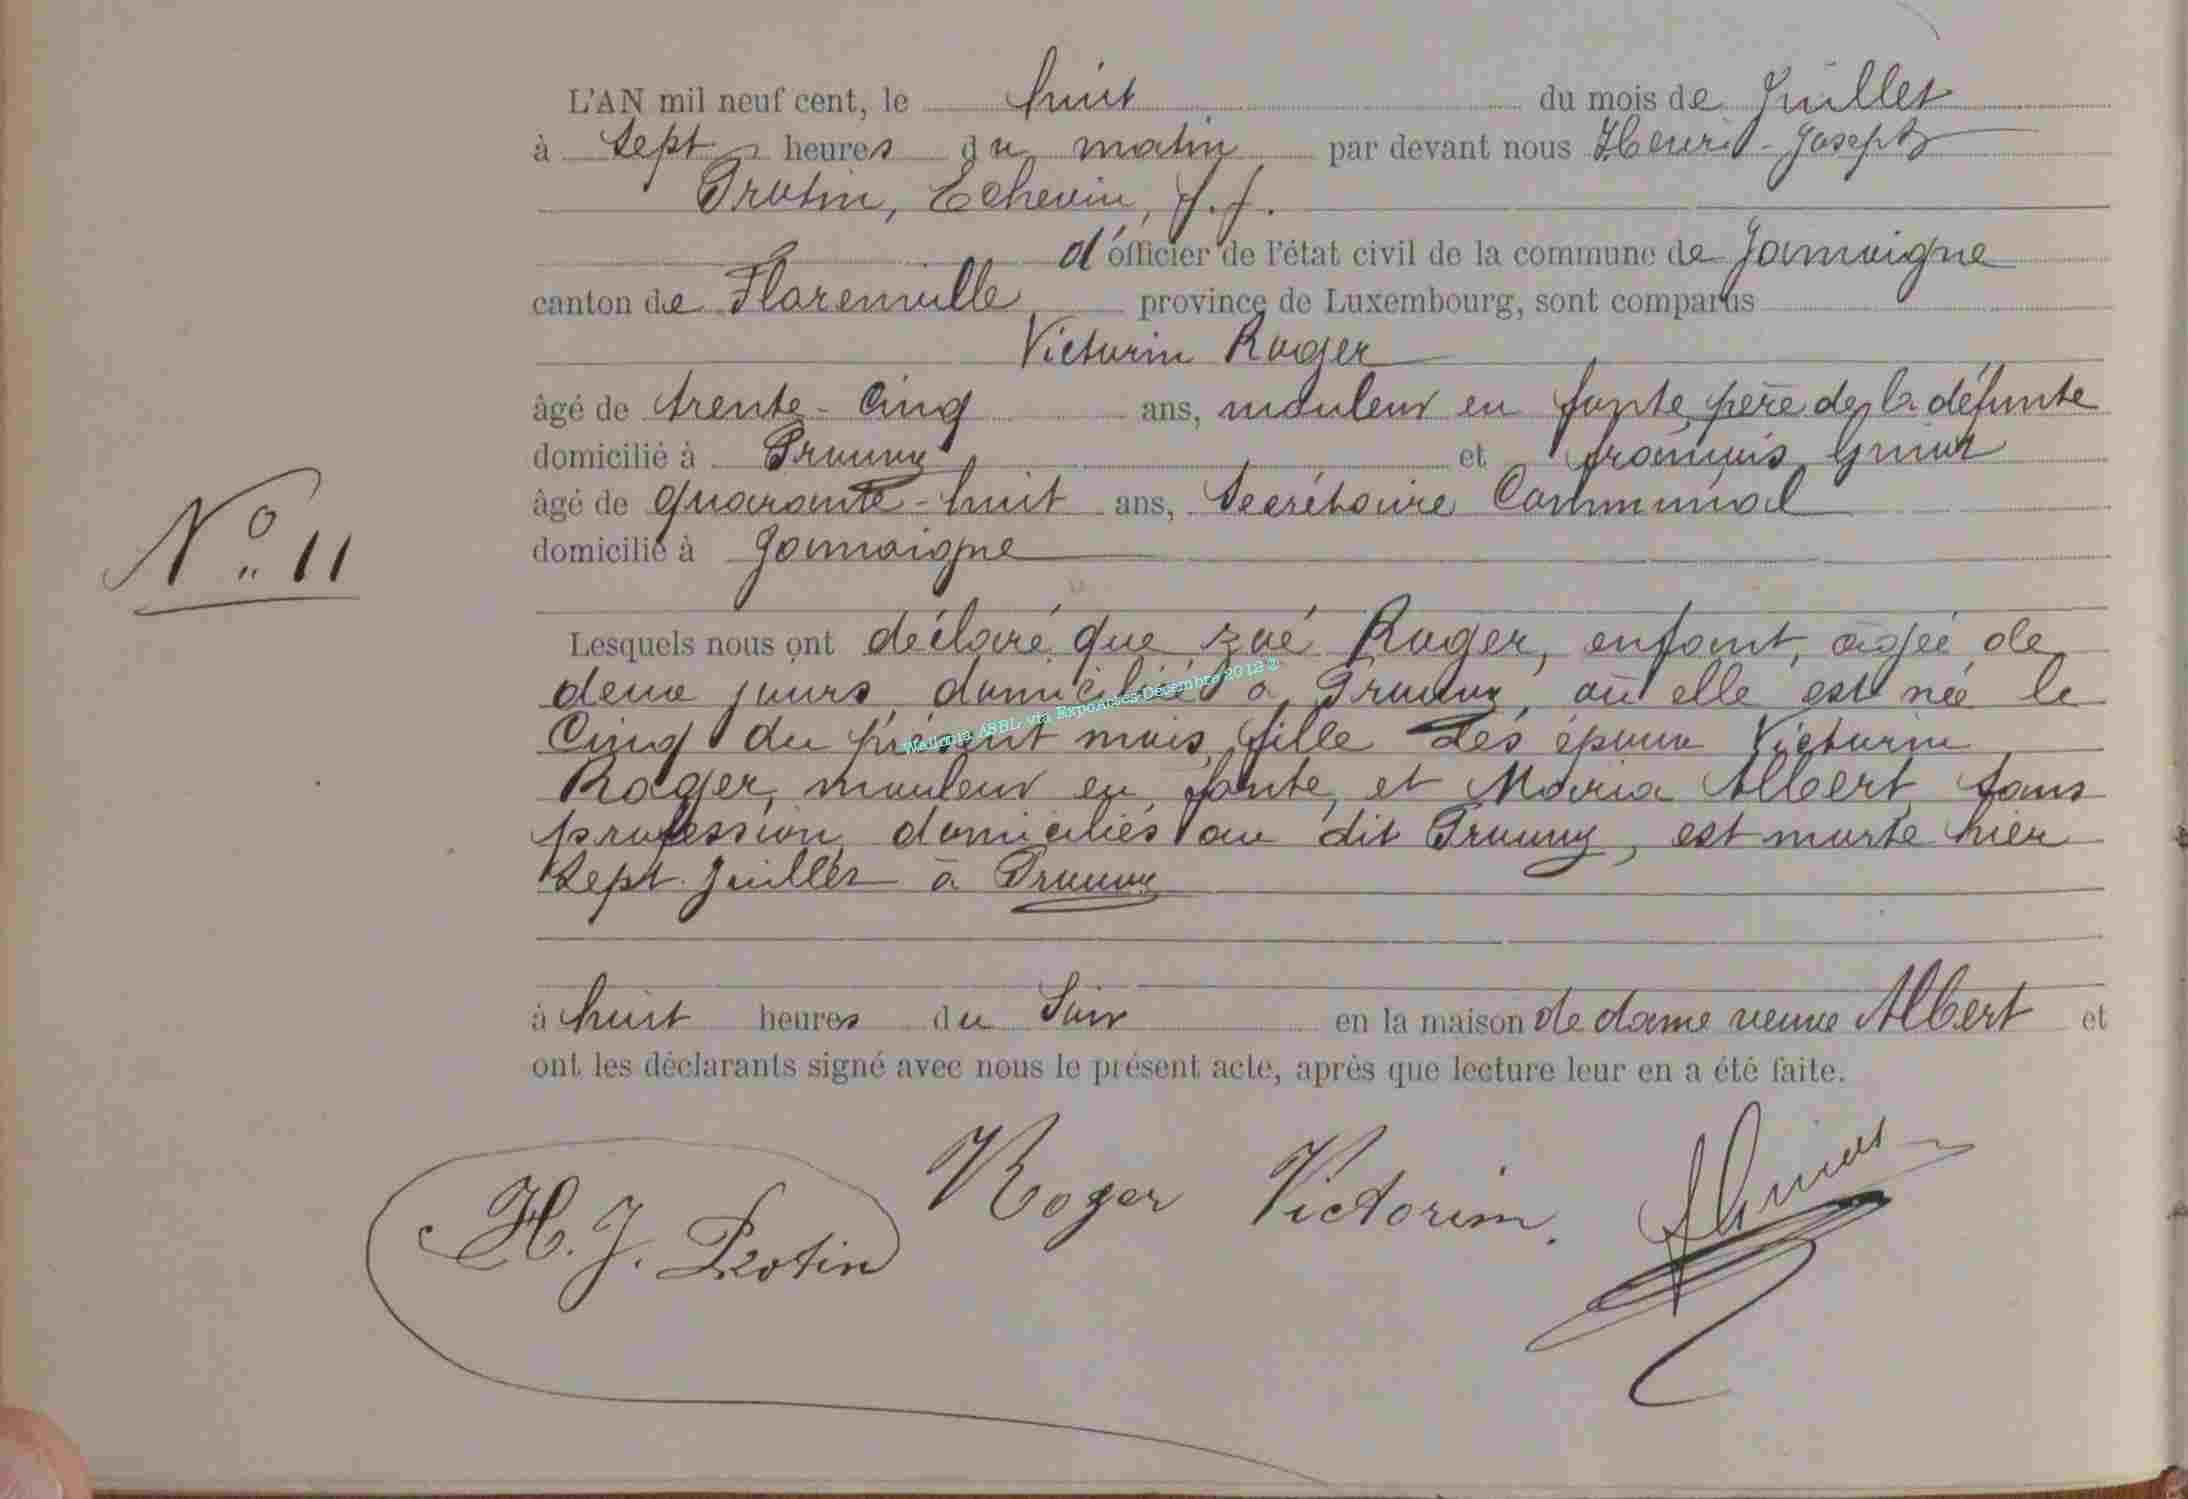 L'AN mil neuf cent, le huit du mois de Juillet
à Sept heures du matin par devant nous Henri-Joseph
Protin, Echevin, f.f.
d'officier de l'état civil de la commune de Jamoigne
canton de Florenville province de Luxembourg, sont comparus
Victorin Roger
âgé de trente-cinq ans, mouleur en fonte, père de la défunte
domicilié à Prouvy et françois
âgé de quarante-huit ans, Secrétaire Communal
domicilié à Jamoigne
N° 11
Lesquels nous ont déclaré que Zoé Roger, enfant, âgée de
deux jours, domiciliée à Prouvy, où elle est née le
Cinq du présent mois, fille des époux Victorin
Roger, mouleur en fonte, et Maria Albert, sans
profession, domiciliés au dit Prouvy, est morte hier
Sept Juillet à Prouvy
à huit heures du Soir en la maison de dame veuve Albert et
ont les déclarants signé avec nous le présent acte, après que lecture leur en a été faite.
H. J. Protin Roger Victorin.
Wallonia ASBL via ExpoActes-Decembre 2012